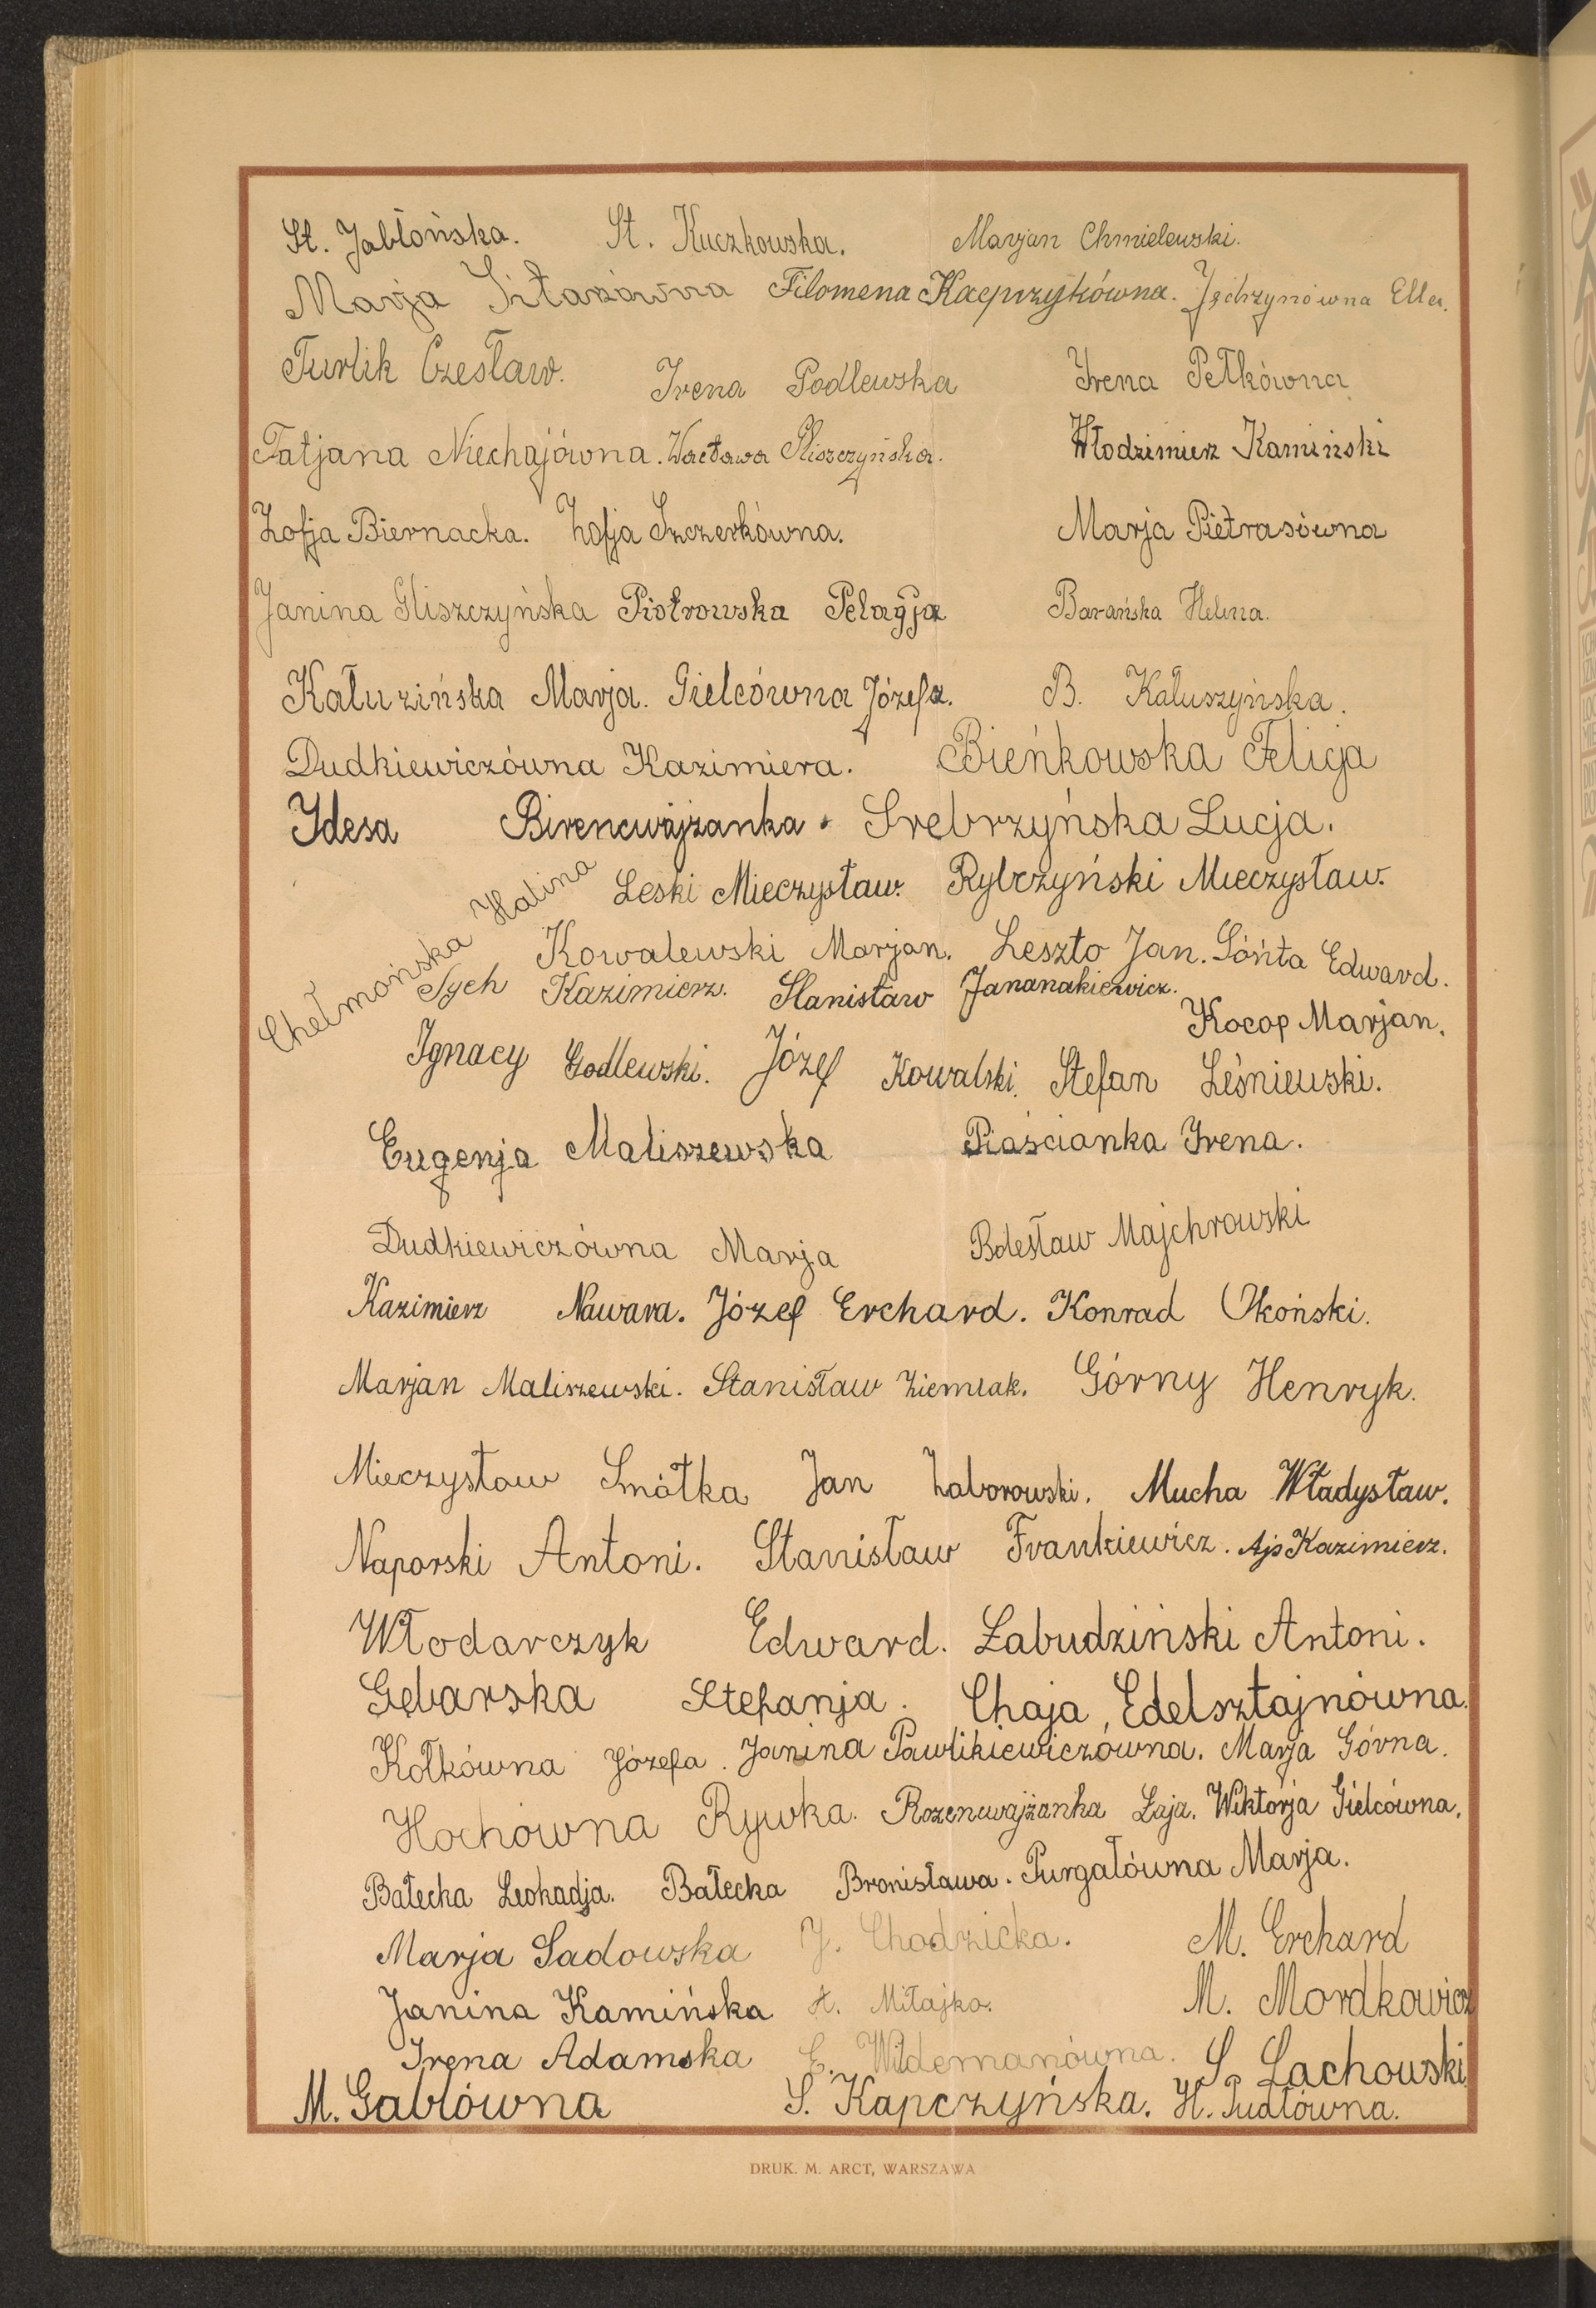 St. Jabłońska. St. Kuczkowska. Marjan Chmielewski.
Marja Filomena Kacprzykówna. Jędrzynówna Ella.
Turlik Czesław. Irena Podlewska Irena Pełkówna
Tatjana Niechajówna. Wacława Gliszczyńska. Włodzimierz Kamiński
Zofja Biernacka. Zofja Szczerkówna. Marja Pietrasówna
Janina Gliszczyńska Piotrowska Pelagja Barańska Helena.
Kałuzińska Marja. Gielcówna Józefa. B. Kałuszyńska.
Dudkiewiczówna Kazimiera. Bieńkowska Felicja
Idesa Birencwajżanka. Srebrzyńska Lucja.
Chełmońska Halina
Leski Mieczysław. Rybczyński Mieczysław.
Kowalewski Marjan. Leszto Jan. Sońta Edward.
Sych Kazimierz. Stanisław
Kocop Marjan.
Ignacy Godlewski. Józef Kowalski. Stefan Leśniewski.
Eugenja Maliszewska Piaścianka Irena.
Dudkiewiczówna Marja Bolesław Majchrowski
Kazimierz Nawara. Józef Erchard. Konrad Okoński.
Marjan Maliszewski. Stanisław Ziemiak. Górny Henryk.
Mieczysław Smółka Jan Zaborowski. Mucha Władysław.
Naporski Antoni. Stanisław Frankiewicz. Ajs Kazimierz.
Włodarczyk Edward. Łabudziński Antoni.
Gębarska Stefanja. Chaja Edelsztajnówna.
Kołkówna Józefa. Janina Pawlikiewiczówna. Marja Górna.
Hochówna Rywka. Rozencwajżanka Łaja. Wiktorja Gielcówna.
Bałecka Leokadja. Bałecka Bronisława. Purgałówna Marja.
Marja Sadowska J. Chodzicka. M. Erchard
Janina Kamińska A. Miłajko. M. Mordkowicz
Irena Adamska E. Wildemanówna. S. Lachowski
M. Gablówna S. Kapczyńska. H. Pudłówna.
DRUK. M. ARCT, WARSZAWA